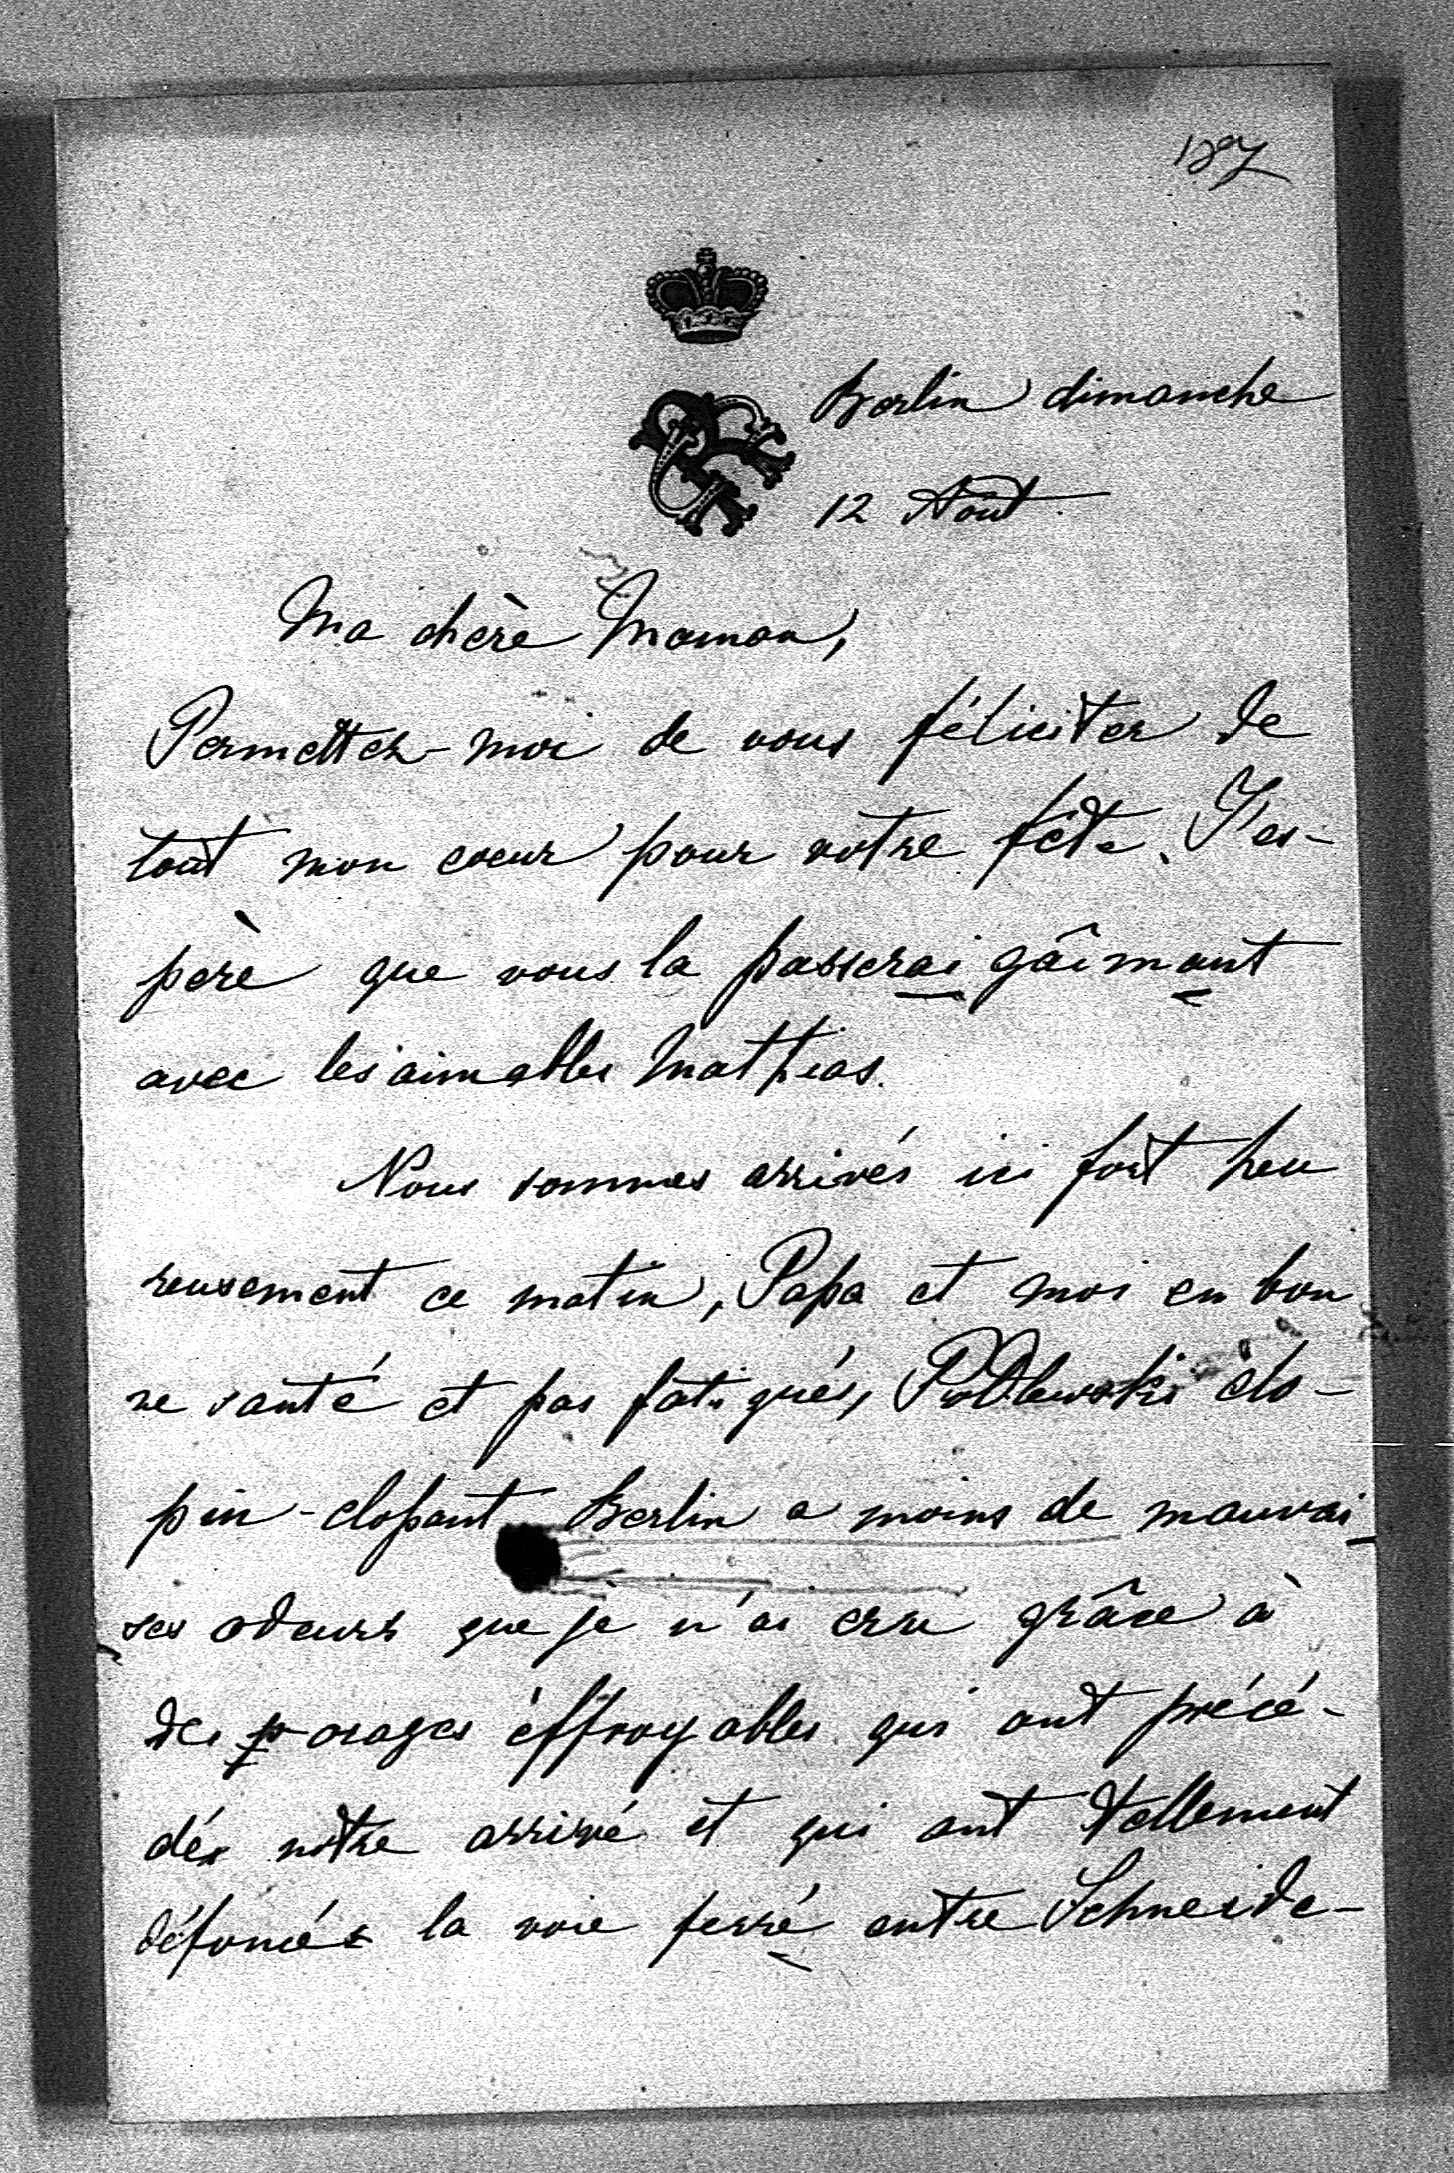 Berlin dimanche
12 Août.
Ma chère Maman,
Permettez-moi de vous féliciter de
tout mon coeur pour votre fête. J'es-
père que vous la passerai gâimant
avec les aimables Mathias.
Nous sommes arrivés ici fort heu
reusement ce matin, Papa et moi en bon
ne santé et pas fatigués, clo-
pin-clopant Berlin a moins de mauvai
ses odeurs que je n'ai cru grâce à
des orages éffroyables qui ont précé-
dés notre arrivé et qui ont tellement
défoncés la voie ferré entre Schneide-